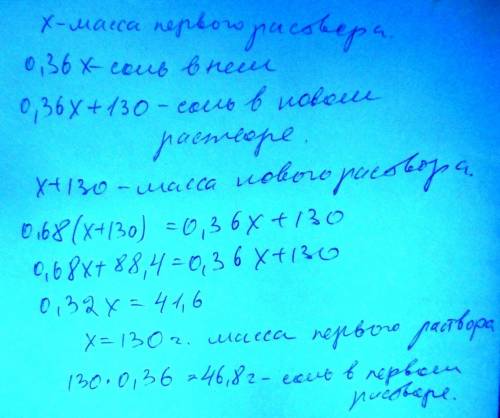 х-масса первого расвора.
0,36х-соль в нем
0,36х+130-соль в новом
растворе.
х+130-масса нового расвора.
0,68(х+130) =0,36х+130
0,68х+88,4=0,36х+130
0,32х=41,6
х=130г. масса первого раствора
130·0,36=46,8г-соль в первом
расворе.